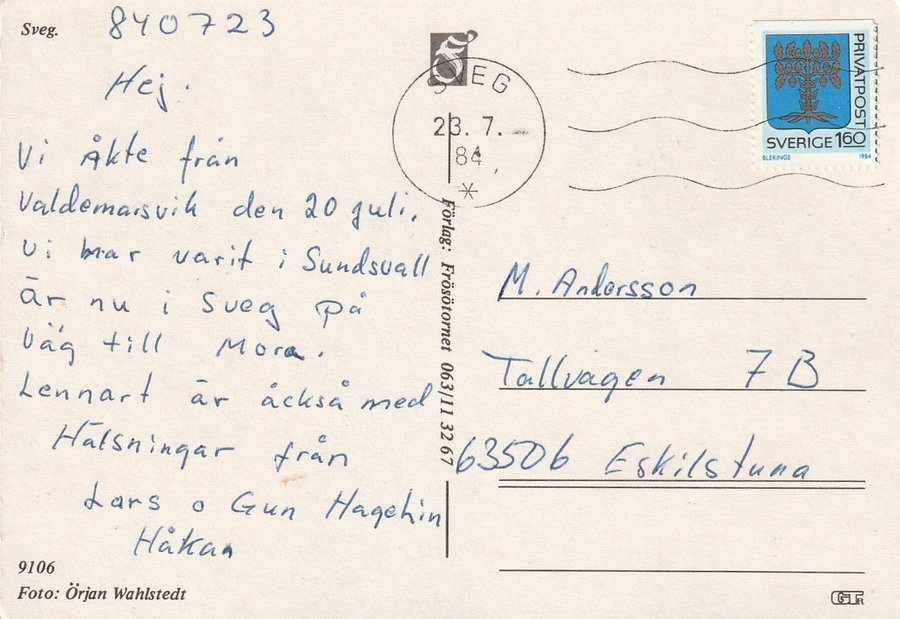 Sveg.
840723
Hej.
Vi Åkte från
Valdemarsvik den 20 juli.
Vi har varit i Sundsvall
Är nu i Sveg på
Väg till Mora.
Lennart är åckså med
Hälsningar från
Lars o Gun Hagelin
Håkan
9106
Foto: Örjan Wahlstedt
Förlag: Frösötornet 063/11 32 67
SVEG
23. 7.
84
PRIVATPOST
SVERIGE 160
BLEKINGE 1984
M. Andersson
Tallvägen 7 B
63506 Eskilstuna